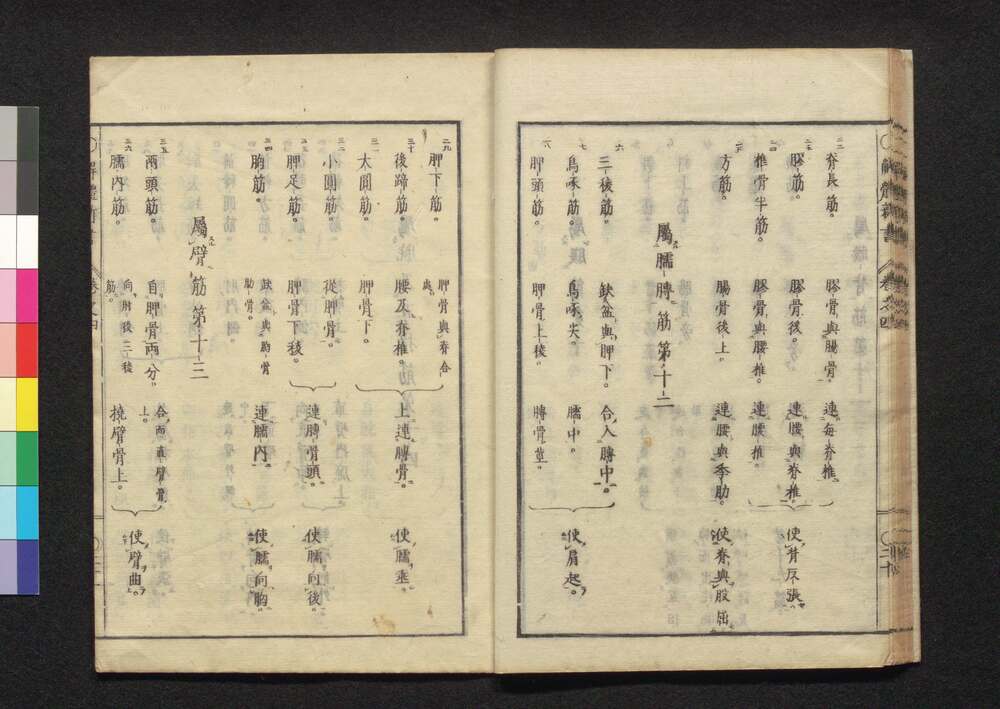 脊長筋。 膠骨與腸骨。 連每脊椎。
膠筋。 膠骨後。 連腰與脊椎。 使背反張。
椎骨半筋。 膠骨與腰椎。 連腰椎。
方筋。 腸骨後上。 連腰與季肋。 使脊與股屈
屬臑膊筋第十二
三稜筋。 缺盆與胛下。 合入膊中。
烏啄筋。 烏啄尖。 臑中。 使肩起。
胛頭筋。 胛骨上稜。 膊骨莖。
胛下筋。 胛骨與脊合處。
後蹄筋。 腰及脊椎。 上連膊骨。 使臑垂。
大圓筋。 胛骨下。
小圓筋。 從胛骨。 連膊骨頭。 使臑向後。
胛足筋。 胛骨下稜。
胸筋。 缺盆與胸骨肋骨。 連臑內。 使臑向胸。
屬臂筋第十三
兩頭筋。 自胛骨兩分。 合而直臂骨上。 使臂曲。
臑內筋。 向胕後三稜筋。 撓臂骨上。
解體新書 卷之四